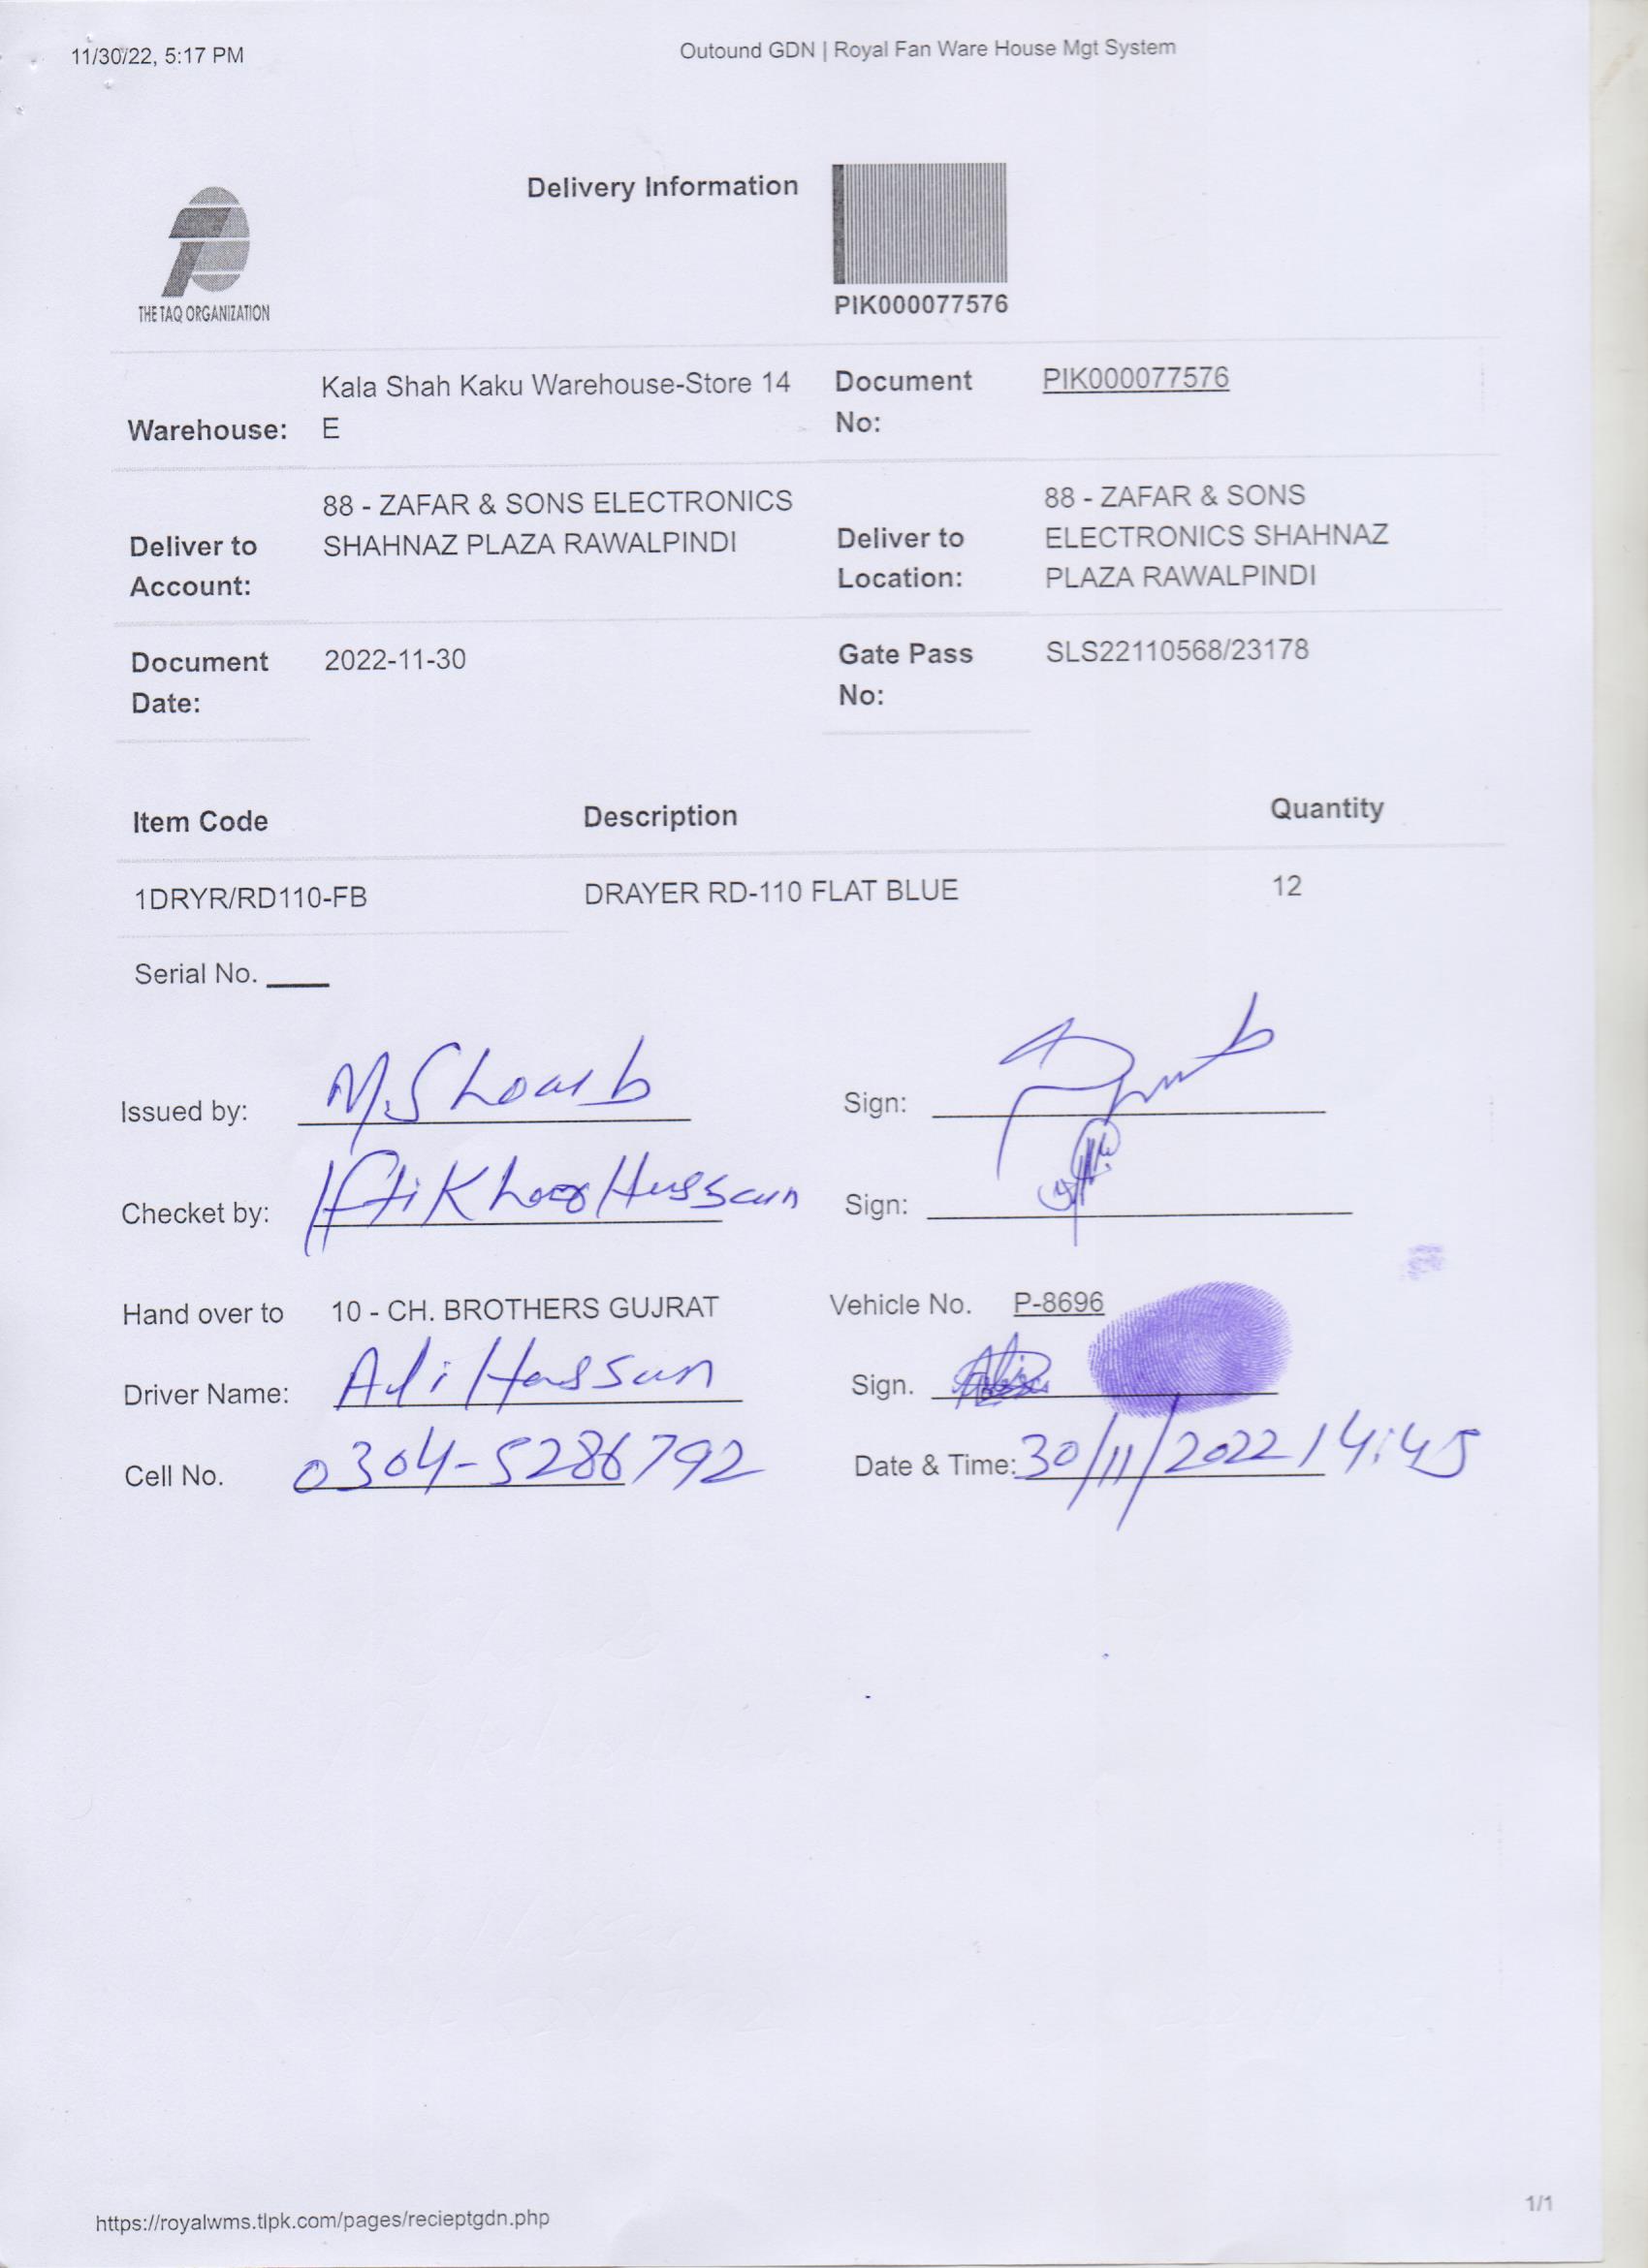 11/30/22, 5:17 PM
Outound GDN | Royal Fan Ware House Mgt System
THE TAQ ORGANIZATION
Delivery Information
PIK000077576
Warehouse: Kala Shah Kaku Warehouse-Store 14 E
Document No: PIK000077576
Deliver to Account: 88 - ZAFAR & SONS ELECTRONICS SHAHNAZ PLAZA RAWALPINDI
Deliver to Location: 88 - ZAFAR & SONS ELECTRONICS SHAHNAZ PLAZA RAWALPINDI
Document Date: 2022-11-30
Gate Pass No: SLS22110568/23178
Item Code Description Quantity
1DRYR/RD110-FB DRAYER RD-110 FLAT BLUE 12
Serial No.
Issued by: M.Shoaib Sign:
Checket by: Iftikhar Hussain Sign:
Hand over to 10 - CH. BROTHERS GUJRAT Vehicle No. P-8696
Driver Name: Ali Hassan Sign.
Cell No. 0304-5286792 Date & Time: 30/11/2022 14:45
https://royalwms.tlpk.com/pages/recieptgdn.php
1/1